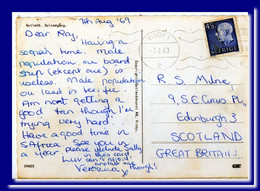 Gotland. Kattunghög.
7th Aug '69
Dear Ray,
Having a
society time. Male
population on board
ship (except one) is
useless. Male population
on land is terrific.
Am not getting a
good tan though I'm
trying very hard.
Have a good time in
S. Africa See you in
a year, please include Sally
in this card
Luv can't afford
another one
Veronica though!
45
SVERIGE
R. S. Milne
9, S.E. Circus Pl,
Edinburgh 3
SCOTLAND
GREAT BRITAIN